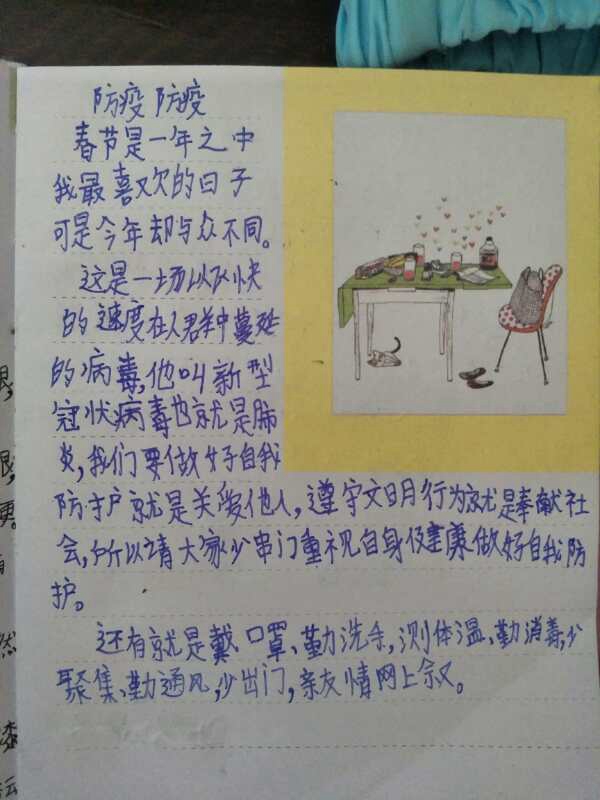 防疫防疫
春节是一年之中
我最喜欢的日子
可是今年却与众不同。
这是一场以飞快
的速度在人群中蔓延
的病毒,他叫新型
冠状病毒也就是肺
炎,我们要做好自我
防护就是关爱他人,遵守文明行为就是奉献社
会,所以请大家少串门重视自身健康做好自我防
护。
还有就是戴口罩、勤洗手,测体温、勤消毒,少
聚集、勤通风,少出门,亲友情网上叙。